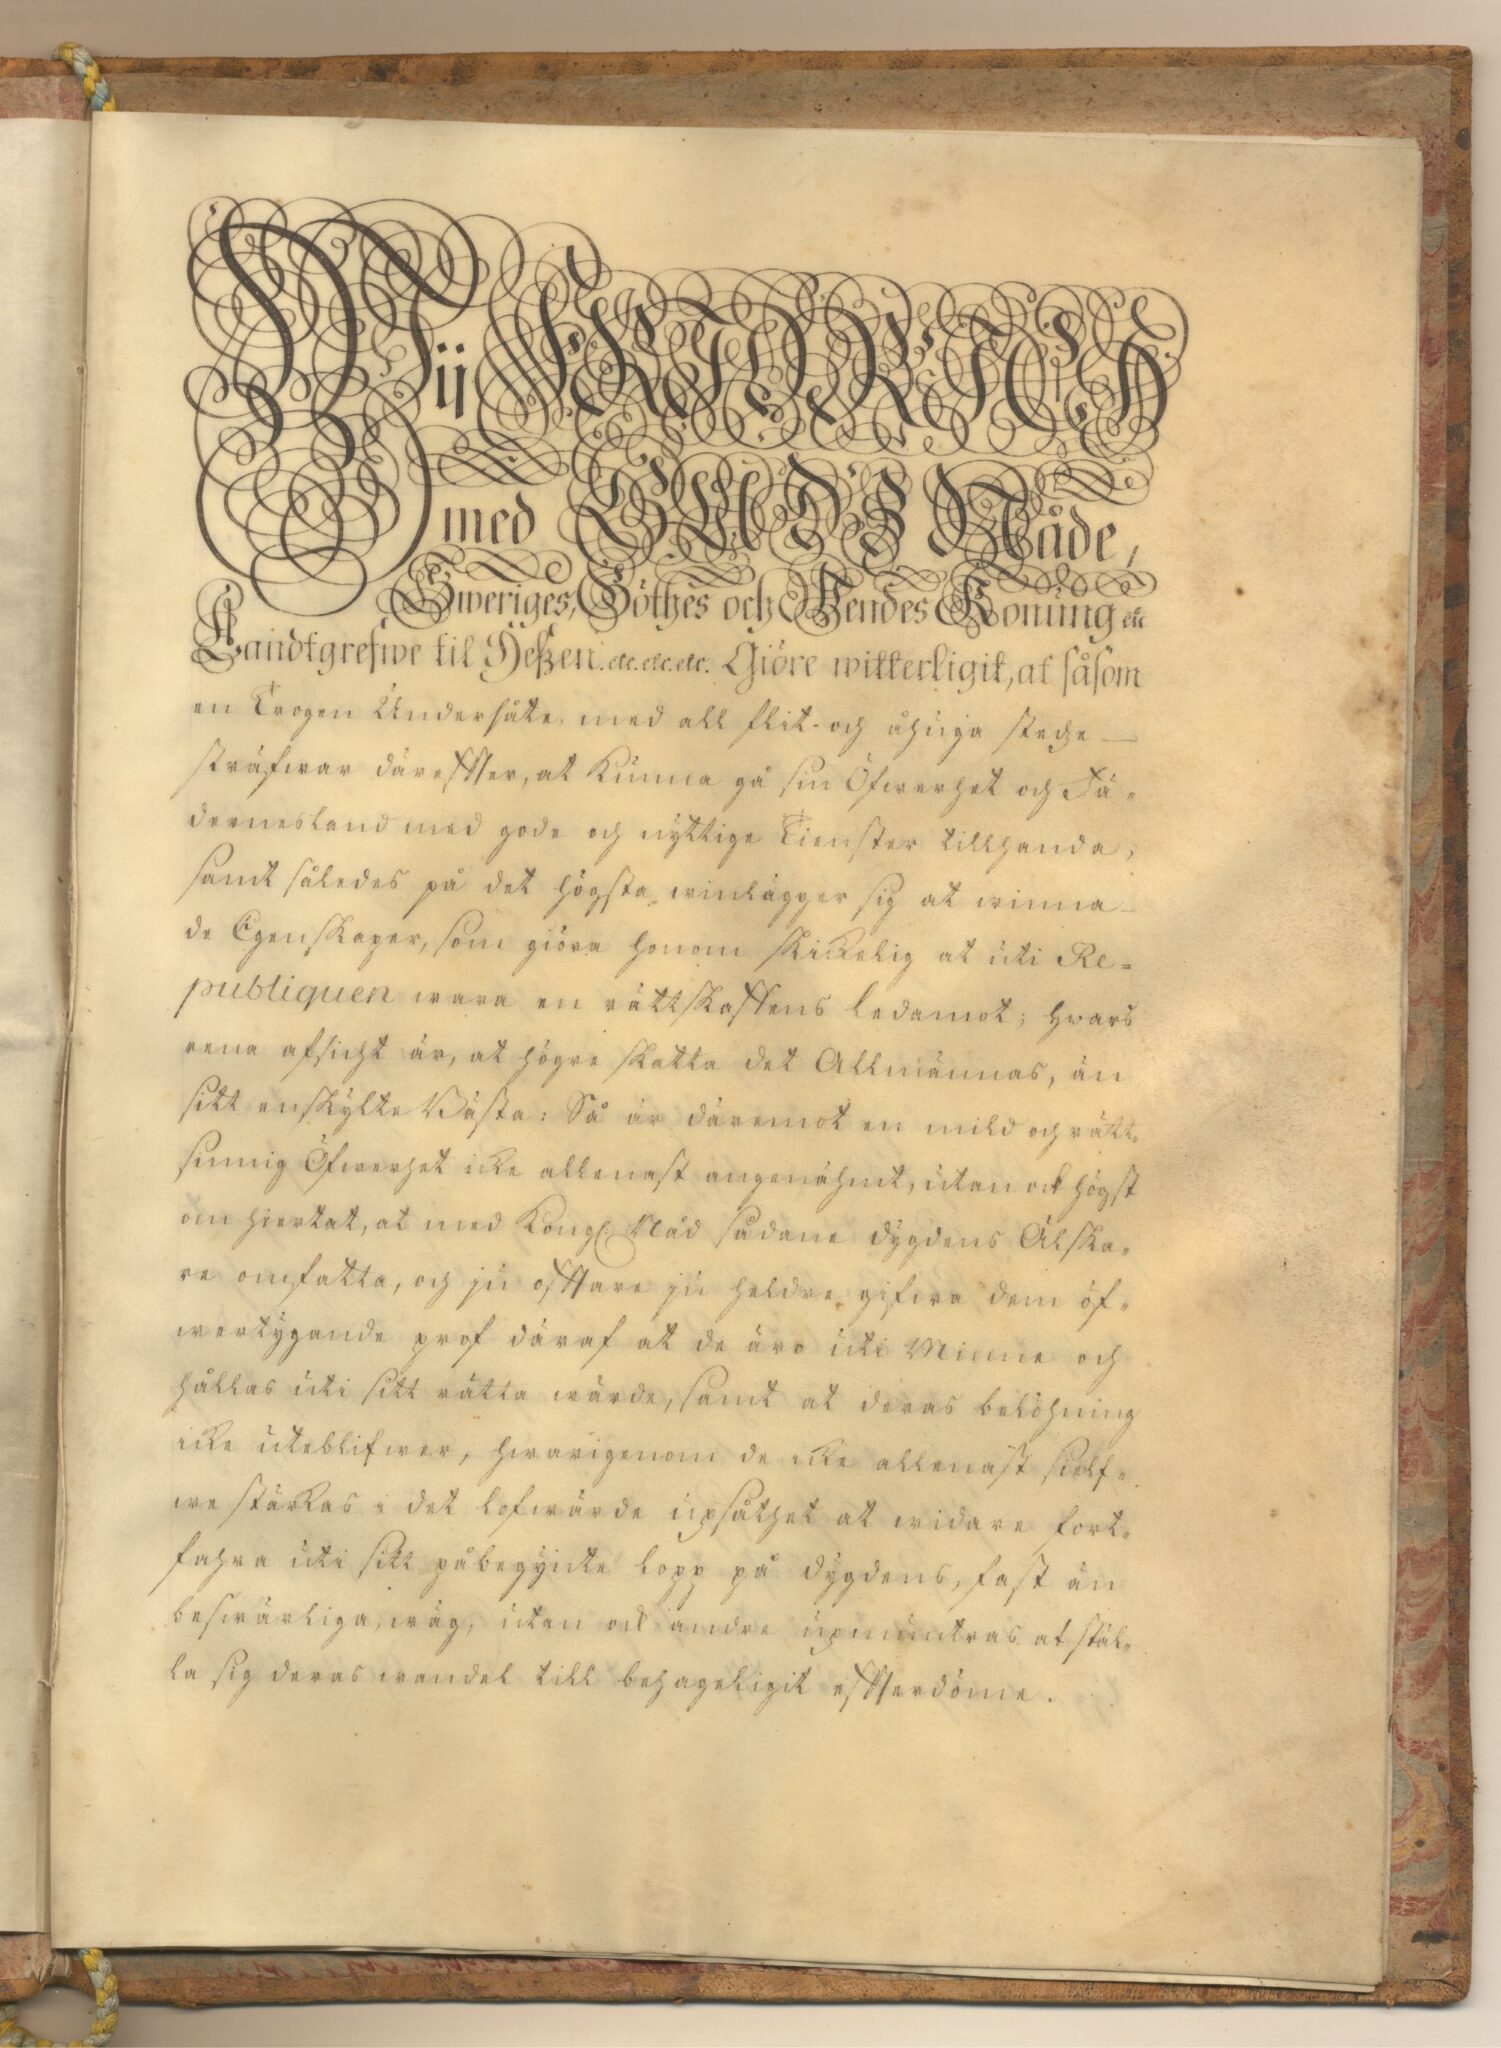 Wij FRIDRICH
med GUDS Nåde,
Sweriges, Göthes och Wendes Koning etc
Landtgrefwe til Heßen. etc. etc. etc. Giöre witterligit, at såsom
en Trogen Undersåte, med all flit och åhuga stedze
sträfwar därefter, at kunna gå sin Öfwerhet och Fä-
dernesland med gode och nyttige Tienster tillhanda,
samt således på det högsta winlägger sig at winna
de Egenskaper, som giöra honom skickelig at uti Re-
publiquen wara en rättskaffens ledamot; hwars
rena afsicht är, at högre skatta det Allmännas, än
sitt enskylte Bästa: Så är däremot en mild och rätt-
sinnig Öfwerhet icke allenast angenähmt, utan ock högst
om hiertat, at med Kongl. Nåd sådane dygdens Älska-
re omfatta, och ju oftare ju heldre gifwa dem öf-
wertygande prof däraf at de äro uti Minne och
hållas uti sitt rätta wärde, samt at deras belöhning
icke uteblifwer, hwarigenom de icke allenast sielf-
we stärkas i det lofwärde upsåthet at widare fort-
fahra uti sitt påbegynte lopp på dygdens, fast än
beswärliga, wäg, utan ock andre upmuntras at stäl-
la sig deras wandel till behageligit efterdöme.